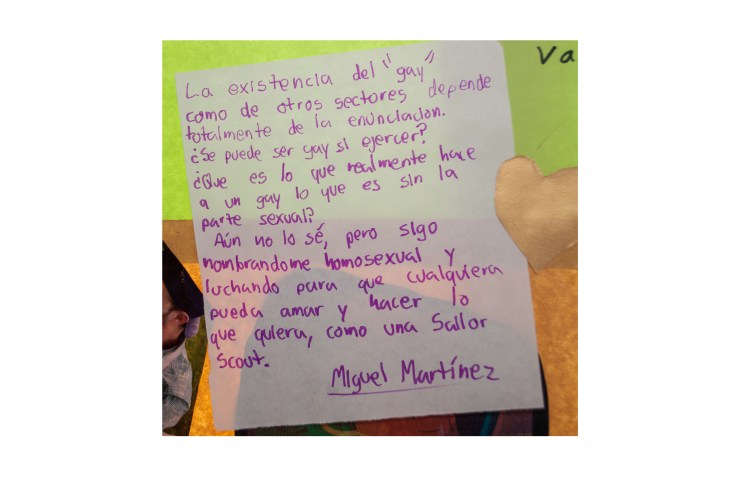 La existencia del "gay"
como de otros sectores depende
totalmente de la enunciación.
¿Se puede ser gay si ejercer?
¿Que es lo que realmente hace
a un gay lo que es sin la
parte sexual?
Aún no lo sé, pero sigo
nombrandome homosexual y
luchando para que cualquiera
pueda amar y hacer lo
que quiera, como una Sailor
Scout.
Miguel Martínez
Va